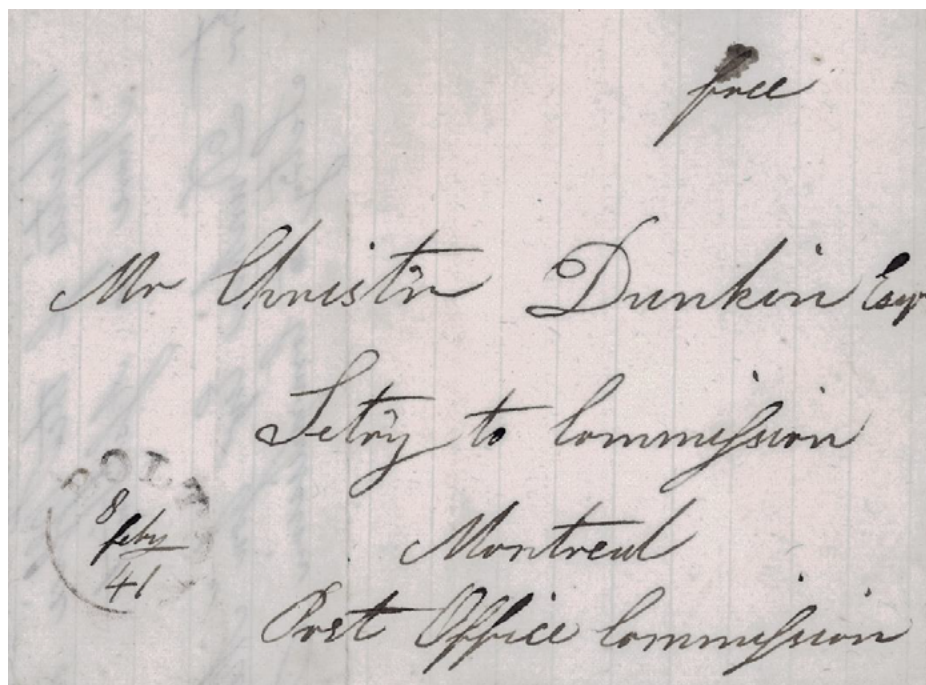 free
Mr Christr Dunkin Esqr
Setry to Commission
Montreal
Post Office Commission
8
feby
41